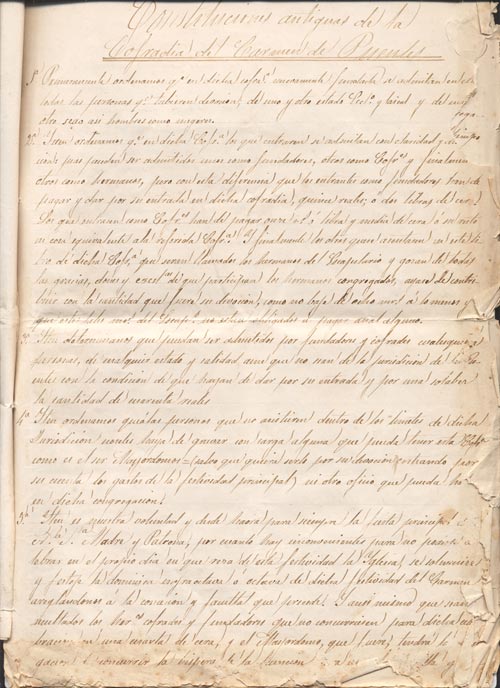 Constituciones antiguas de la
Cofradia del Carmen de Puentes
1ª Primeramente ordenamos qe en dicha cofrª nuevamente fundada se admitan en ella
todas las personas qe tubieren devocion, de uno y otro estado Ecco y laical y de uno y
otro sexo asi hombres como mugeres.
2ª Item ordenamos qe en dicha Cofrª los que entraren se admitan con claridad y distinción
pues pueden ser admitidos unos como fundadores, otros como Cofres y finalmente
otros como hermanos, pero con esta diferencia que los entrantes como fundadores han de
pagar y dar por su entrada en dicha cofradia, quince reales, o dos libras de cera
Los que entraren como Cofres han de pagar once rs o libra y media de cera ó su valor
en cosa equivalente a la referida Cofrª. Y finalmente los otros que se asentaren en este
bro de dicha Cofrª que seran llamados los hermanos del Escapulario y gozan de todas
las gracias, dones y que participan los hermanos congregados, ayan de contri-
buir con la cantidad que fuere su devocion, como no baje de ocho mrs a lo menos,
que estos solo no estan obligados a pagar anal alguno.
3ª Iten determinamos que puedan ser admitidos por fundadores y cofrades cualesquiera
personas, de cualquier estado y calidad, aun que no sean de la jurisdicion de la Pu-
ente con la condicion de que hayan de dar por su entrada y por una sola vez
la cantidad de cuarenta reales
4ª Iten ordenamos qualas personas que no asistieren dentro de los limites de dicha
Jurisdicion no se les haya de gravar con carga alguna que pueda tener esta Cofrª
como es el ser Mayordomos (salvo que quiera serlo por su devocion entrando por
su cuenta los gastos de la festividad principal) ni otro oficio que pueda ha
en dicha congregacion.
5ª Iten es nuestra voluntad y desde haora para siempre la fiesta principal de
Nª Sª Madre y Patrona, por cuanto hay inconvenientes para no poderse ce
lebrar en el propio dia en que reza de esta festividad la Yglesia, se solemnice
y festeje la Dominica infraoctava o octava de dicha festividad del Carmen
arreglandonos á la ocasion y facultad que permite. Y asi mismo que sean
multados los cofrades y fundadores que no concurriesen para dicha ce
en una cuarta de cera, y el Mayordomo, que fuere, tendra la o
gacion de concurrir la vispera de la